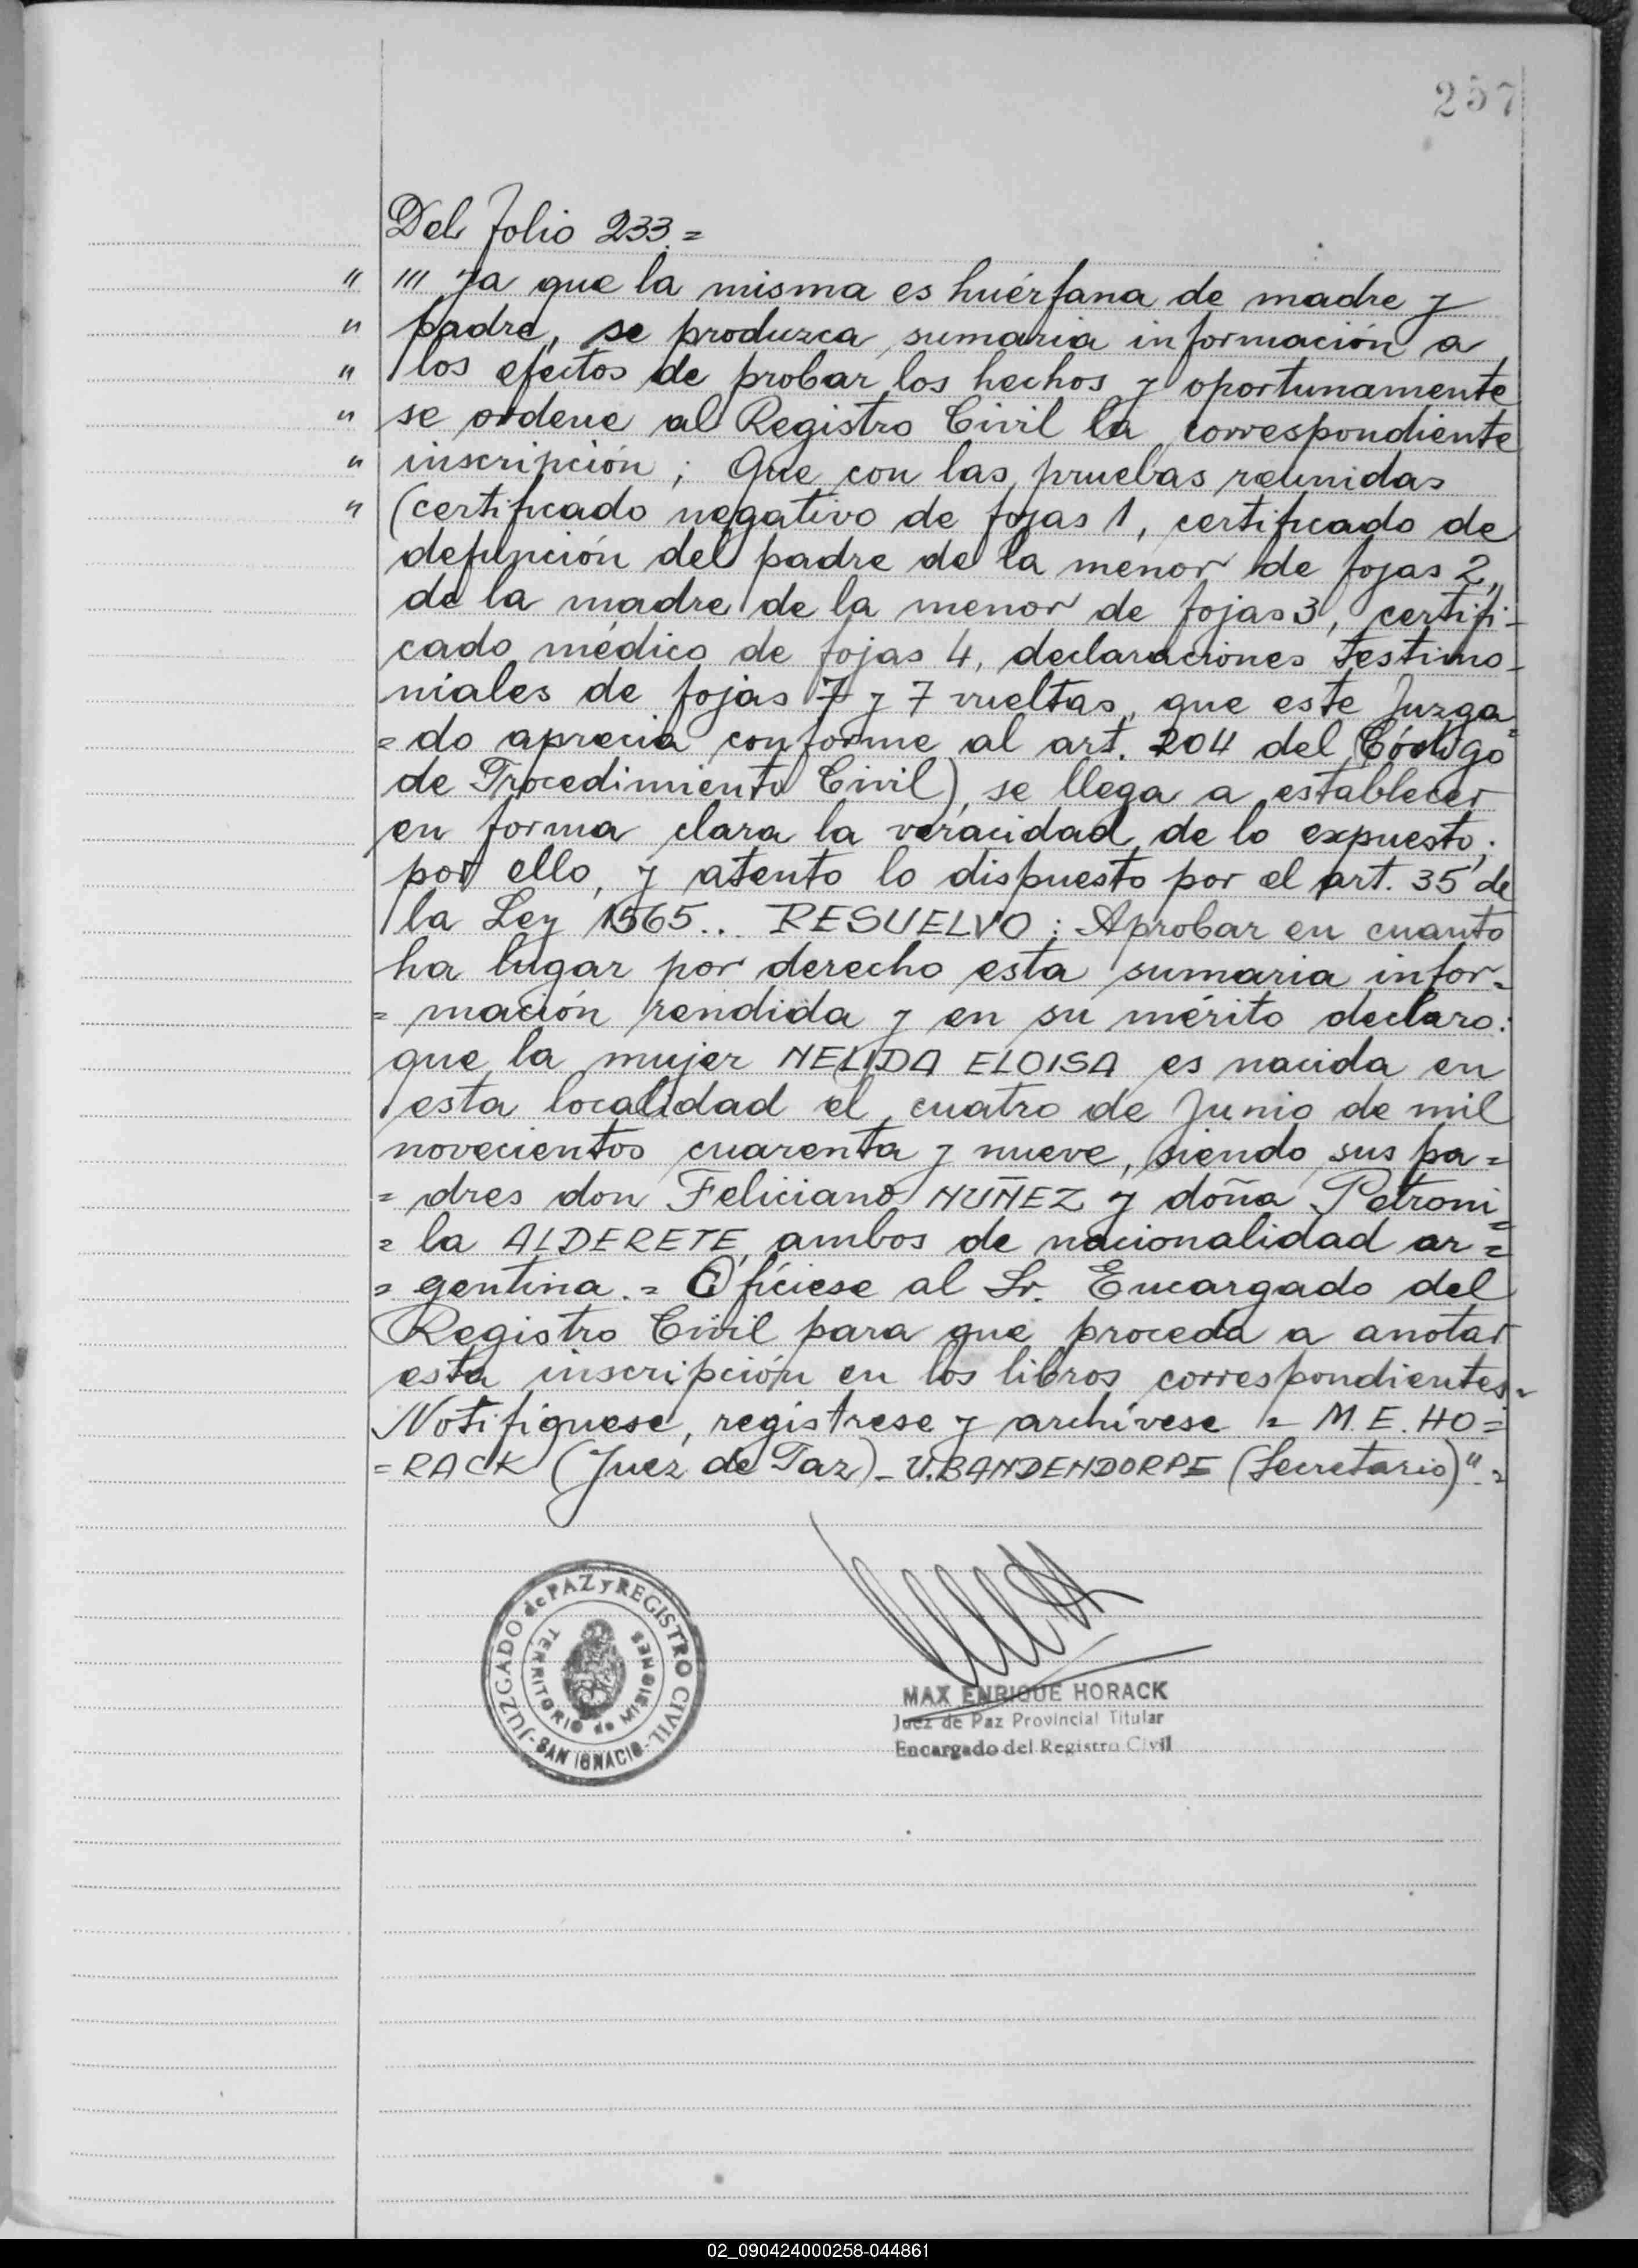 257
Del Folio 233.=
" "' ya que la misma es huérfana de madre y
" padre, se produzca sumaria información a
" los efectos de probar los hechos y oportunamente
" se ordene al Registro Civil la correspondiente
" inscripción; Que con las pruebas reunidas
" (certificado negativo de fojas 1, certificado de
defunción del padre de la menor de fojas 2,
de la madre de la menor de fojas 3, certifi-
cado médico de fojas 4, declaraciones testimo-
niales de fojas 7 y 7 vueltas, que este Juzga=
=do aprecia conforme al art. 204 del Código
de Procedimiento Civil), se llega a establecer
en forma clara la veracidad de lo expuesto;
por ello, y atento lo dispuesto por el art. 35 de
la Ley 1565.. RESUELVO: Aprobar en cuanto
ha lugar por derecho esta sumaria infor=
=mación rendida y en su mérito declaro:
que la mujer NELIDA ELOISA es nacida en
esta localidad el cuatro de Junio de mil
novecientos cuarenta y nueve, siendo sus pa=
=dres don Feliciano NUÑEZ y doña Petroni=
=la ALDERETE, ambos de nacionalidad ar=
=gentina.= Ofíciese al Sr. Encargado del
Registro Civil para que proceda a anotar
esta inscripción en los libros correspondientes.=
Notifíquese, regístrese y archívese = M.E. HO=
=RACK (Juez de Paz)_ V.BANDENDORPE (Secretario)".=
JUZGADO de PAZ y REGISTRO CIVIL
TERRITORIO de MISIONES
-SAN IGNACIO-
MAX ENRIQUE HORACK
Juez de Paz Provincial Titular
Encargado del Registro Civil
02_090424000258-044861